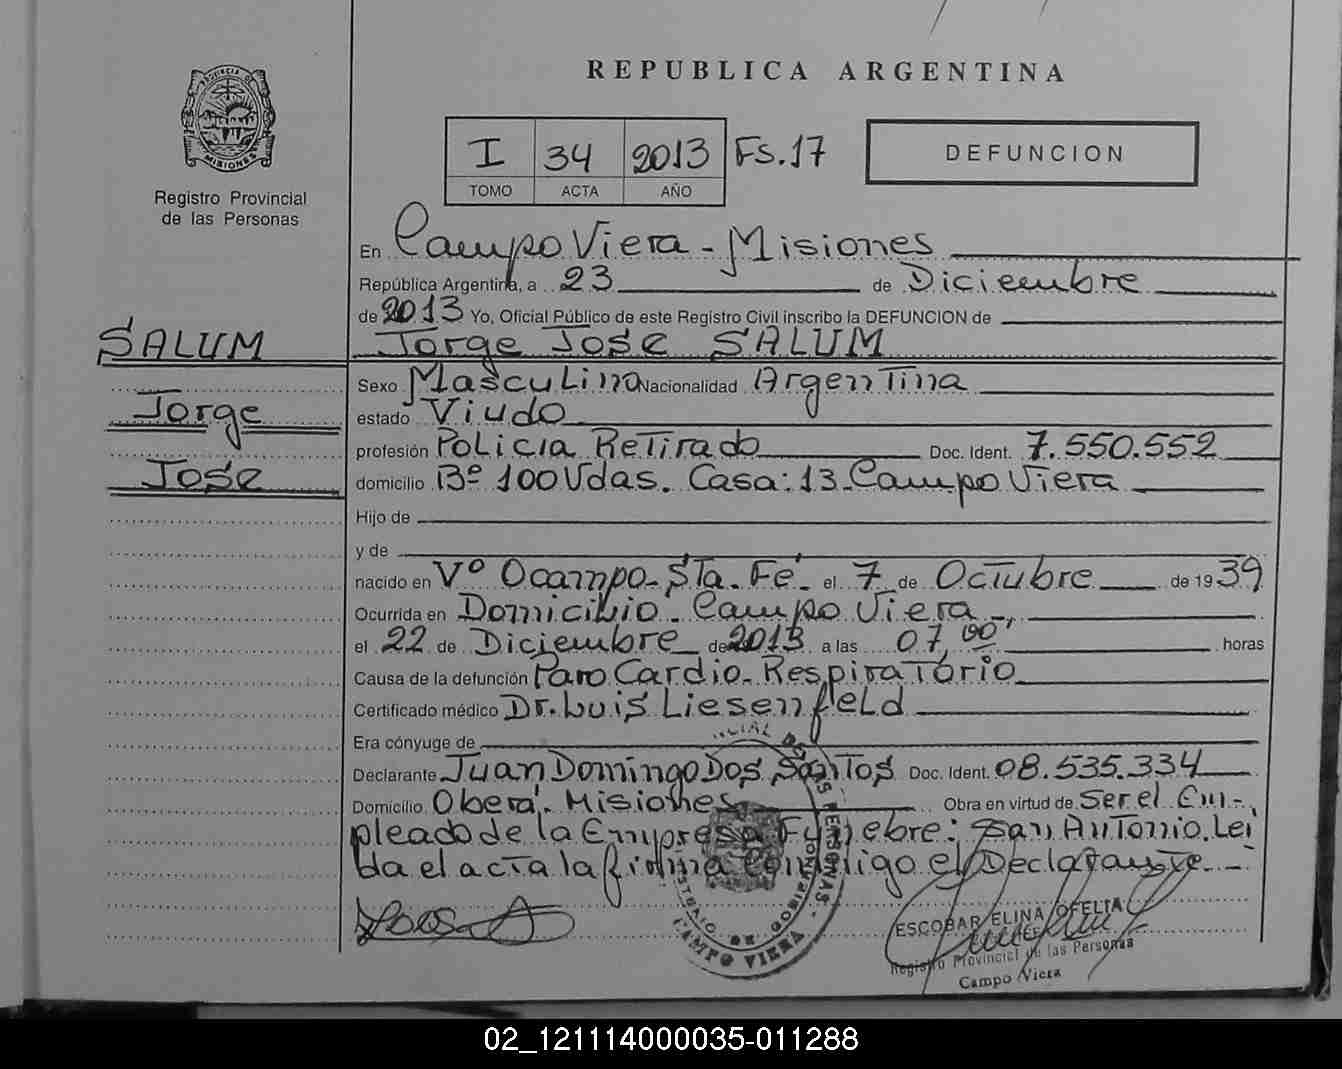 REPUBLICA ARGENTINA
PROVINCIA DE MISIONES
Registro Provincial
de las Personas
I 34 2013 Fs.17
TOMO ACTA AÑO
DEFUNCION
En Campo Viera - Misiones
República Argentina, a 23 de Diciembre
de 2013 Yo, Oficial Público de este Registro Civil inscribo la DEFUNCION de
SALUM
Jorge Jose SALUM
Sexo Masculino Nacionalidad Argentina
Jorge
estado Viudo
profesión Policia Retirado Doc. Ident. 7.550.552
Jose
domicilio Bº 100 Vdas. Casa: 13. Campo Viera
Hijo de
y de
nacido en Vº Ocampo - Sta. Fé el 7 de Octubre de 1939
Ocurrida en Domicilio - Campo Viera -
el 22 de Diciembre de 2013 a las 07,00' horas
Causa de la defunción Paro Cardio - Respiratorio
Certificado médico Dr. Luis Liesenfeld
Era cónyuge de
Declarante Juan Domingo Dos Santos Doc. Ident. 08.535.334
Domicilio Oberá - Misiones Obra en virtud de Ser el Em-
pleado de la Empresa Funebre: San Antonio. Lei
da el acta la firma Conmigo el Declarante. -
ESCOBAR ELINA OFELIA
Registro Provincial de las Personas
Campo Viera
CAMPO VIERA
02_121114000035-011288